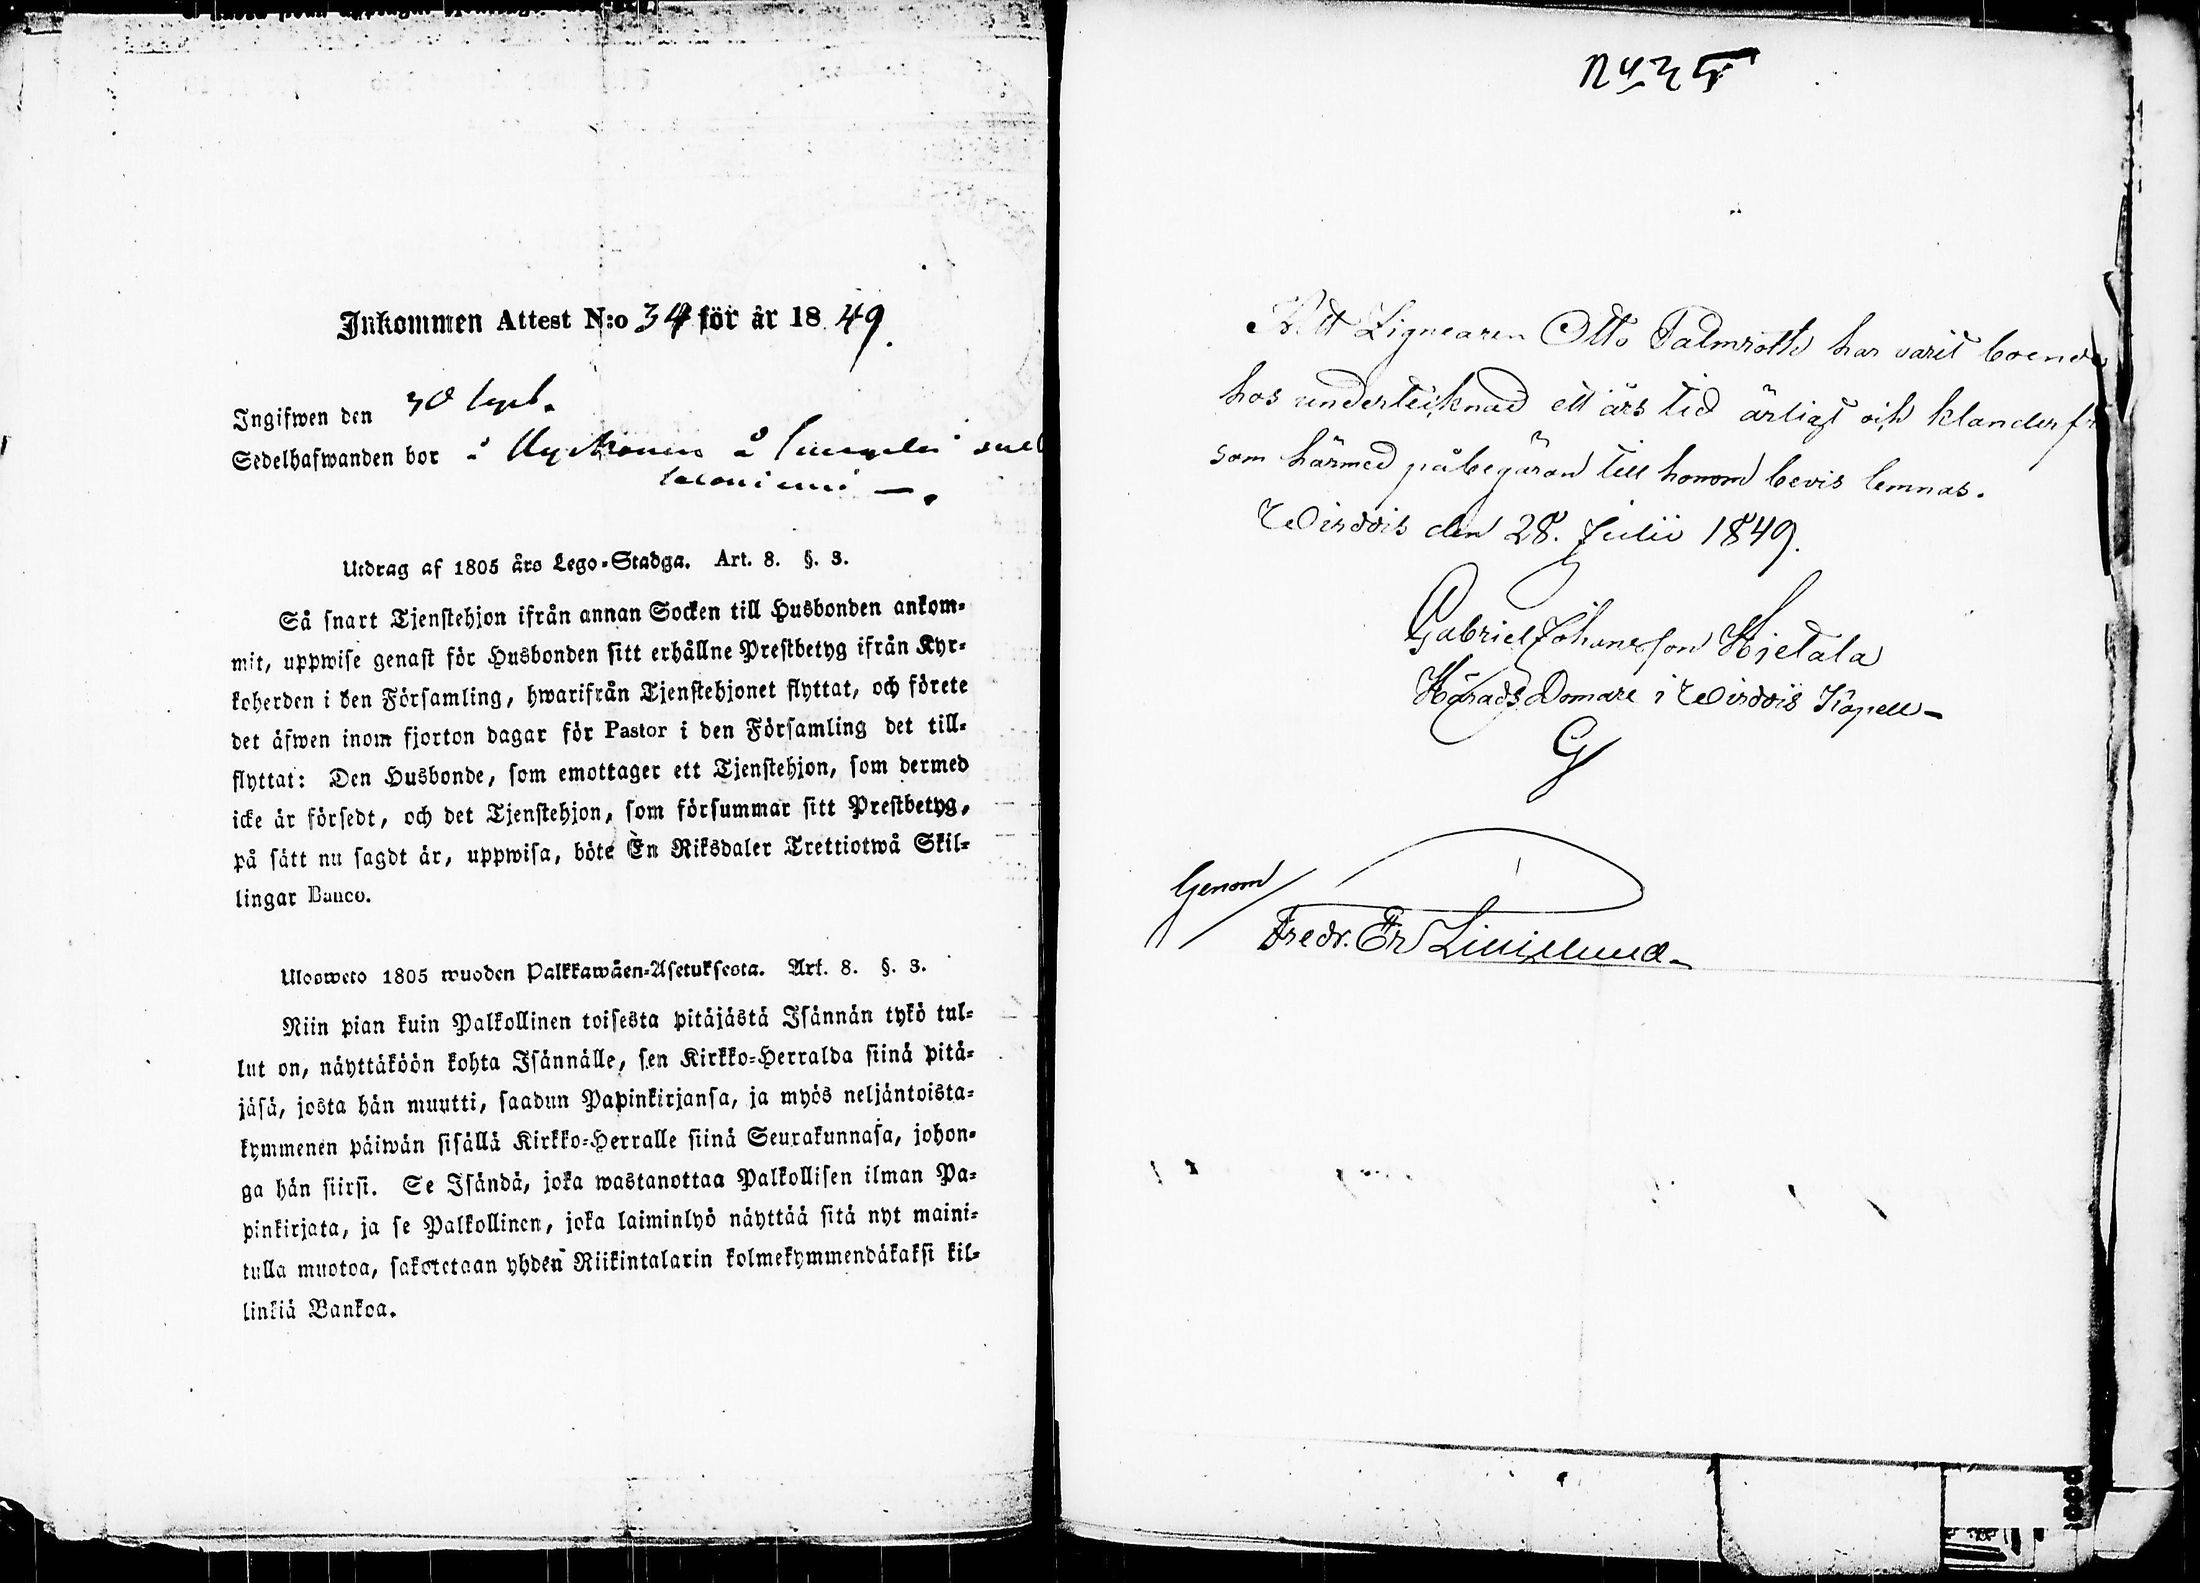 Inkommen Attest N:o 34 för år 1849.
Ingifwen den 30 Sept.
Sedelhafwanden bor
Utdrag af 1805 års Lego-Stadga. Art. 8. §. 3.
Så snart Tjenstehjon ifrån annan Socken till Husbonden ankom-
mit, uppwise genast för Husbonden sitt erhållne Prestbetyg ifrån Kyr-
koherden i den Församling, hwarifrån Tjenstehjonet flyttat, och förete
det äfwen inom fjorton dagar för Pastor i den Församling det till-
flyttat: Den Husbonde, som emottager ett Tjenstehjon, som dermed
icke är försedt, och det Tjenstehjon, som försummar sitt Prestbetyg,
på sätt nu sagdt är, uppwisa, böte En Riksdaler Trettiotwå Skil-
lingar Banco.
Ulosweto 1805 wuoden Palkkawäen-Asetuksesta. Art. 8. §. 3.
Niin pian kuin Palkollinen toisesta pitäjästä Isännän tykö tul-
lut on, näyttäköön kohta Isännälle, sen Kirkko-Herralda siinä pitä-
jäsä, josta hän muutti, saadun Papinkirjansa, ja myös neljäntoista-
kymmenen päiwän sisällä Kirkko-Herralle siinä Seurakunnasa, johon-
ga hän siirsi. Se Isändä, joka wastanottaa Palkollisen ilman Pa-
pinkirjata, ja se Palkollinen, joka laiminlyö näyttää sitä nyt maini-
tulla muotoa, sakotetaan yhden Riikintalarin kolmekymmendäkaksi kil-
linkiä Bankoa.
Att Ligvearen Otto Palmroth har varit boende
hos undertecknad ett års tid ärligt och klanderfr
som härmed på begäran till honom bevis lemnas.
Wirdois den 28. Julii 1849.
Gabriel Johansson Hjetala
Härads Domare i Wirdois Kapell-
G
Genom
Fredr. Er Lilljelund-